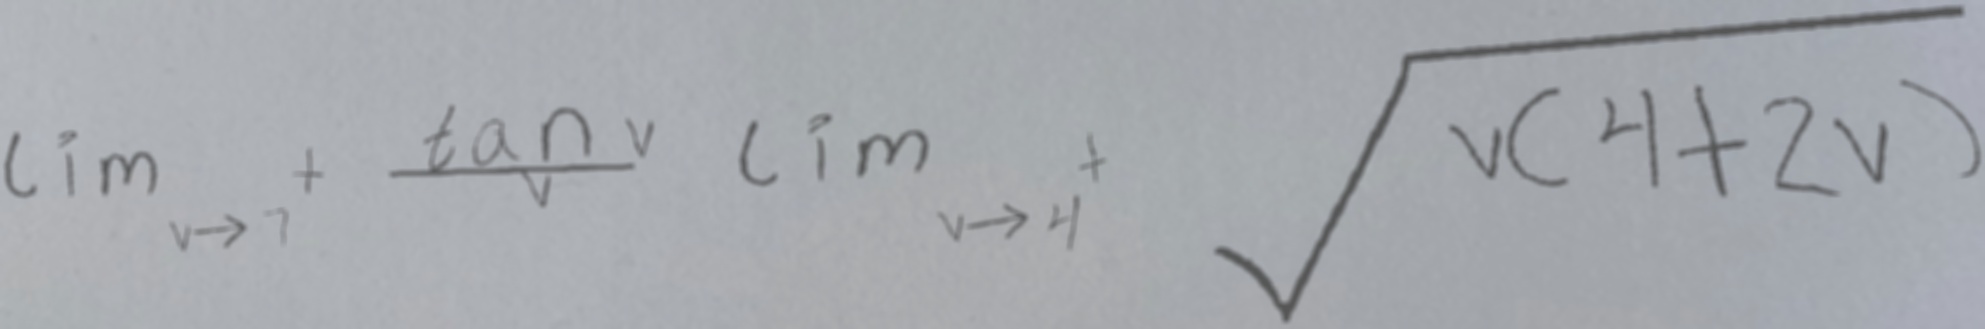 lim_{v→7^+} \frac{tan v}{v} lim_{v→4^+} \sqrt{v(4+2v)}